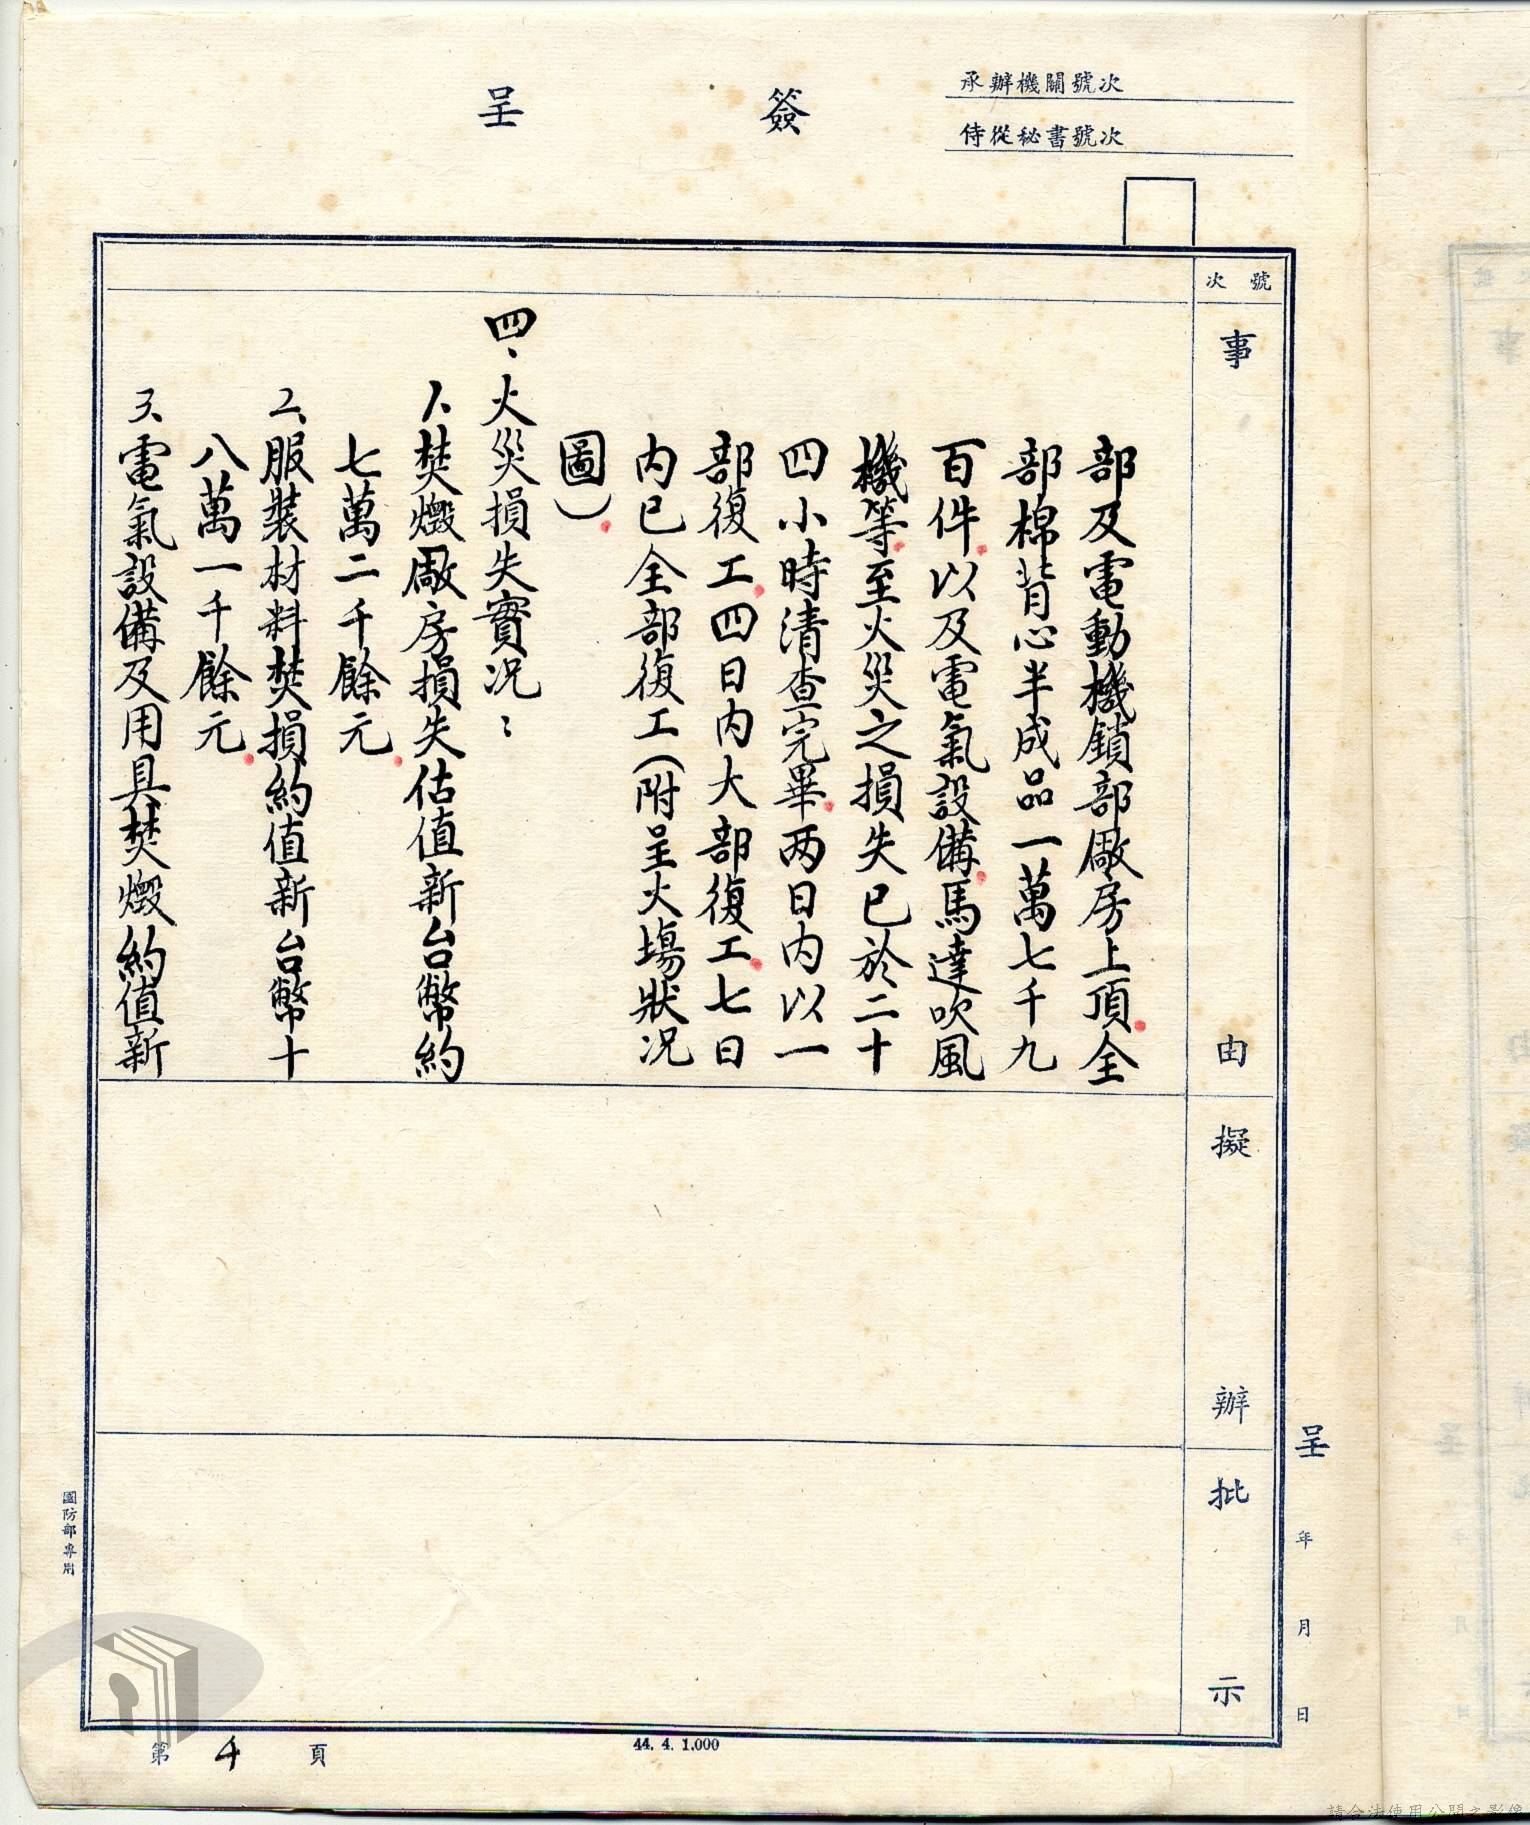 承辦機關號次
侍從秘書號次
簽呈
號次
事由
擬辦
批示
部及電動機鎖部廠房上頂全
部棉背心半成品一萬七千九
百件以及電氣設備馬達吹風
機等至火災之損失已於二十
四小時清查完畢两日内以一
部復工四日内大部復工七日
内已全部復工(附呈火場狀况
圖)
四、火災損失實况：
1、焚燬廠房損失估值新台幣約
七萬二千餘元
2、服裝材料焚損約值新台幣十
八萬一千餘元
3、電氣設備及用具焚燬約值新
呈 年 月 日
國防部專用
第 4 頁
44. 4. 1,000
請合法使用公開之影像